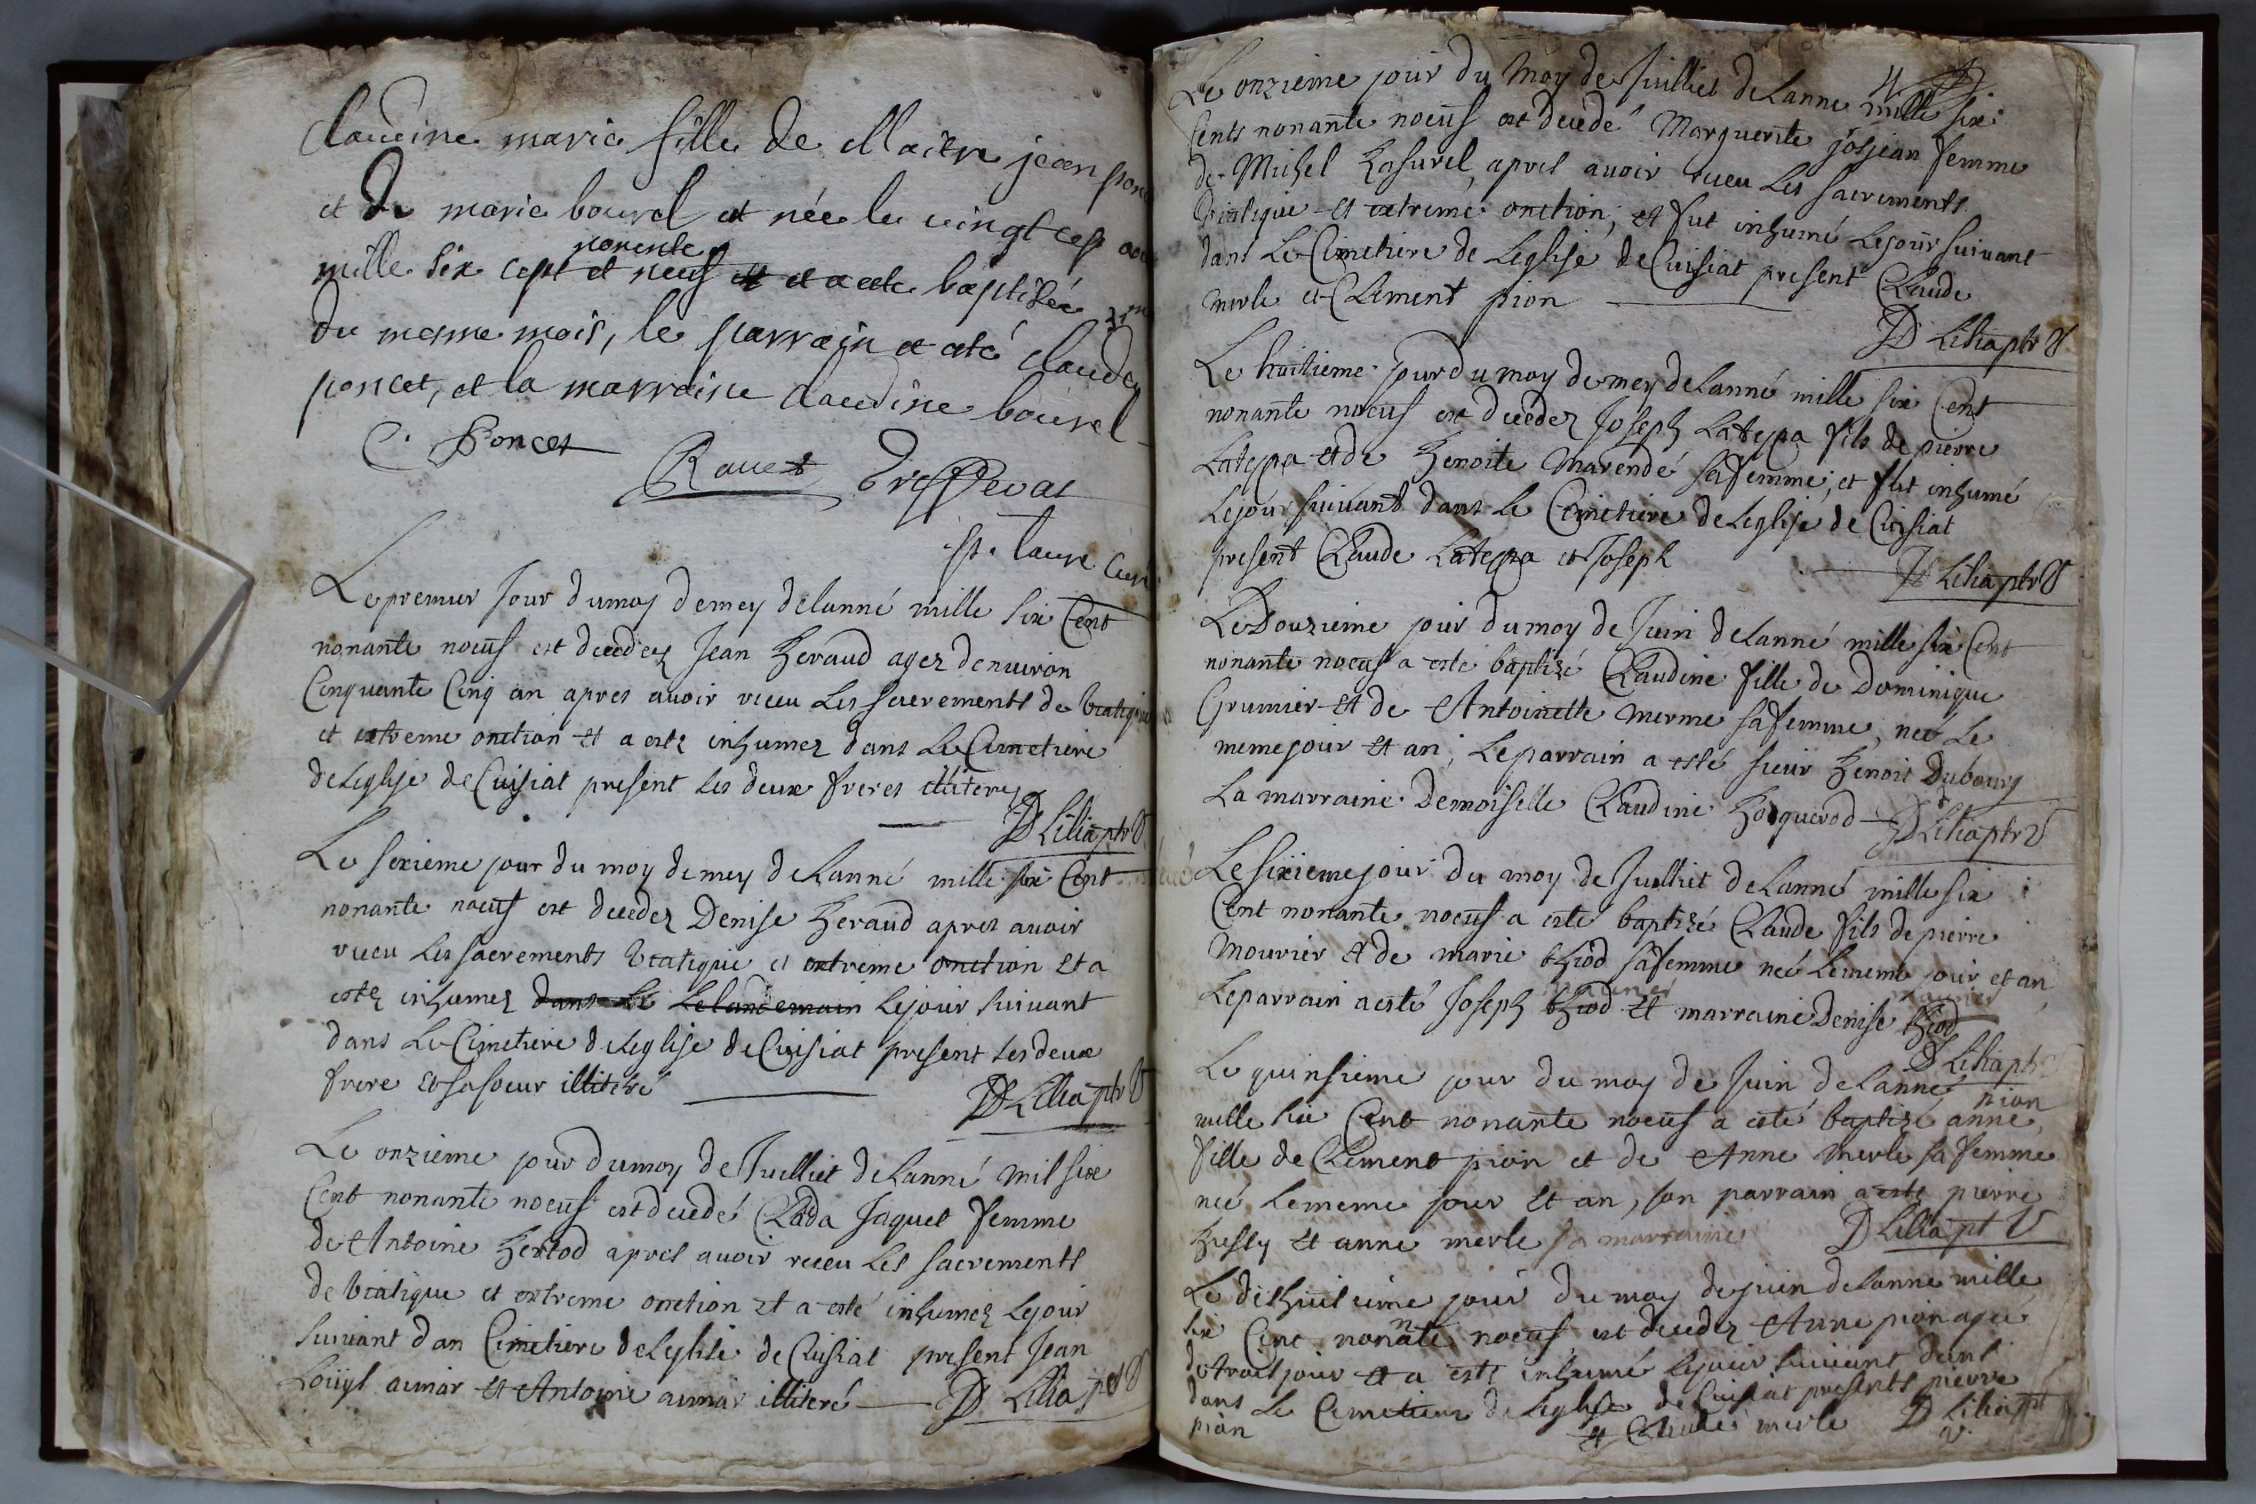 Claudine marie fille de Maitre jean
et de marie bourel et née le vingt sept
nonente
mille six cept et neuf et a ete baptisée
du mesme mois, le parrain a eté claude
poncet, et la marraine claudine bourel
C. Poncet
Rouet Treffevat
Le premier Jour du moy de mey de lanné mille six Cent
nonante noeuf est decedez Jean heraud agez denuiron
Cinquante Cinq an apres auoir receu Les sacrements de
et extreme onction et a este inhumez dans Le Cimetiere
de Leglise de Cuisiat present les deux freres illiterez
D Liliaptr V
Le sixieme jour du moy de mey de Lanné mille six Cent
nonante noeuf est decedez Denise heraud apres auoir
receu Les sacrements Viatique et extreme onction et a
este inhumez dans le Le landemain le jour suiuant
dans Le Cimetiere de Leglise de Cuisiat present les deux
frere et sa soeur illiteré
D Lilia ptr V
Le onzieme jour du moy de Juilliet de Lanné mil six
Cent nonante noeuf est decedé Clada Jaquet femme
de Antoine hertod apres auoir receu Les sacrements
de Viatique et extreme onction et a esté inhumez Le jour
suiuant dan Cimetiere de Leglise de Cuisiat present Jean
Loüys aimar et Antoine aimar illiteré D Lilia ptr V
Le onzieme jour du Moy de Juilliet de Lanne mille six
Cents nonante noeuf est decedé Marguerite josjean femme
de Michel hasurel, apres auoir receu Les sacrements
Viatique et extreme onction, et fut inhumé Le jour suiuant
dans Le Cimetiere de Leglise de Cuisiat present Claude
merle et Clement pion
D Liliaptr V
Le huitieme jour du moy de mey de Lanné mille six Cent
nonante noeuf est decedez Joseph Lateppa fils de pierre
Lateppa et de benoite Marende sa femme, et fut inhumé
Le jour suiuant dans Le Cimetiere de Leglise de Cuisiat
present Claude Lateppa et Joseph
D Liliaptr V
Le Douzieme jour du moy de Juin de Lanné mille six Cent
nonante noeuf a esté baptizé Claudine fille de Dominique
Grumier et de Antoinette merme sa femme, neé Le
meme jour et an, Le parrain a esté sieur benoit Dubourg
La marraine Demoiselle Claudine D Liliaptr V
Le sixieme jour du moy de Juilliet de Lanné mille six
Cent nonante noeuf a esté baptizé Claude fils de pierre
Mourier et de marie thiod sa femme neé Le meme jour et an
Le parrain a esté Joseph thiod et marraine Denise thiod
D Liliaptr
Le quinsieme jour du moy de Juin de Lanné
pion
mille six Cent nonante noeuf a esté baptizé anne,
fille de Clement pion et de Anne merle sa femme
neé Le meme jour et an, son parrain a esté pierre
et anne merle sa marraine D Lilia pt V
Le dishuitieme jour du moy de juin de Lanne mille
six Cent nonante noeuf est decedez Anne pion ageé
de trois jour et a este inhumé le jour suiuant dans
dans Le Cimetiere de Leglise de Cuisiat presents pierre
pion et Claude merle D Lilia pt
V